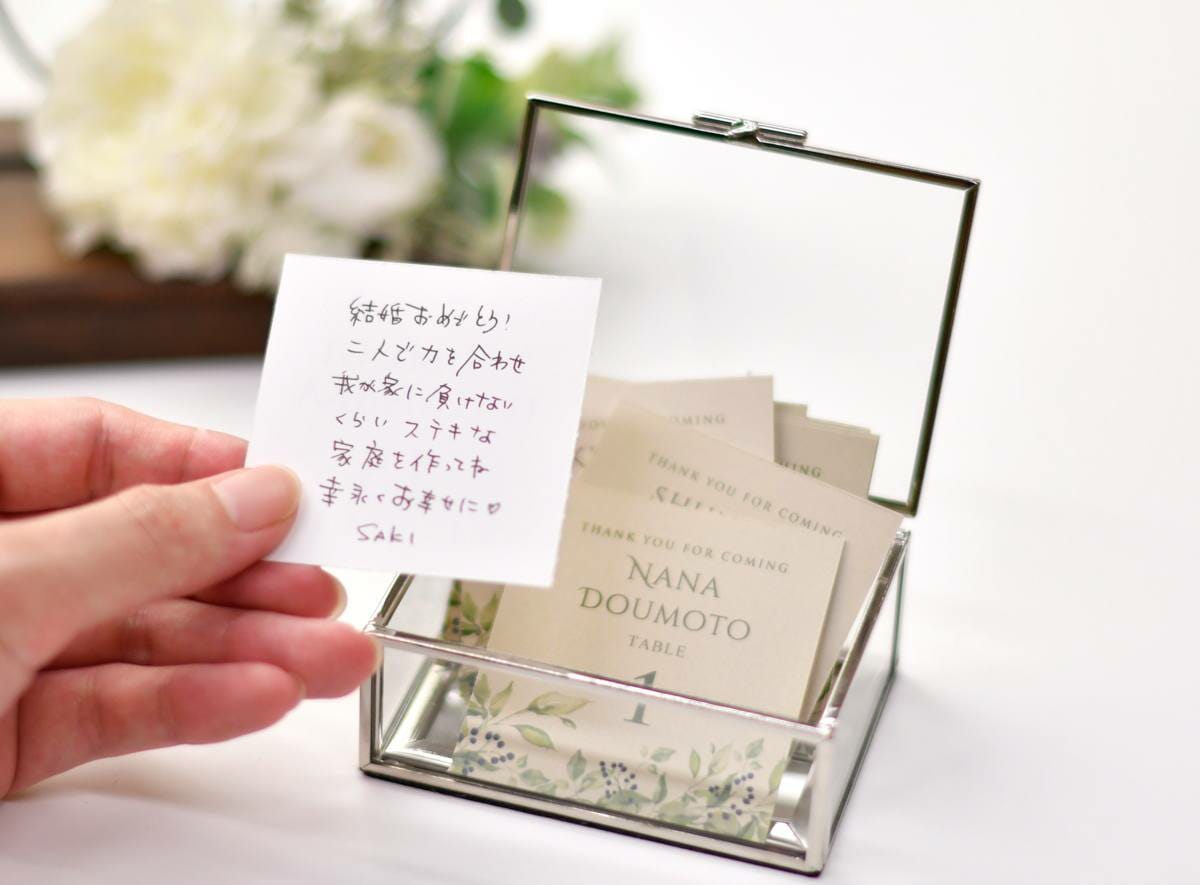 結婚おめでとう!
二人で力を合わせ
我が家に負けない
くらいステキな
家庭を作ってね
幸永くお幸せに♡
SAKI
COMING
COMING
THANK YOU FOR COMING
THANK YOU FOR COMING
NANA
DOUMOTO
TABLE
1